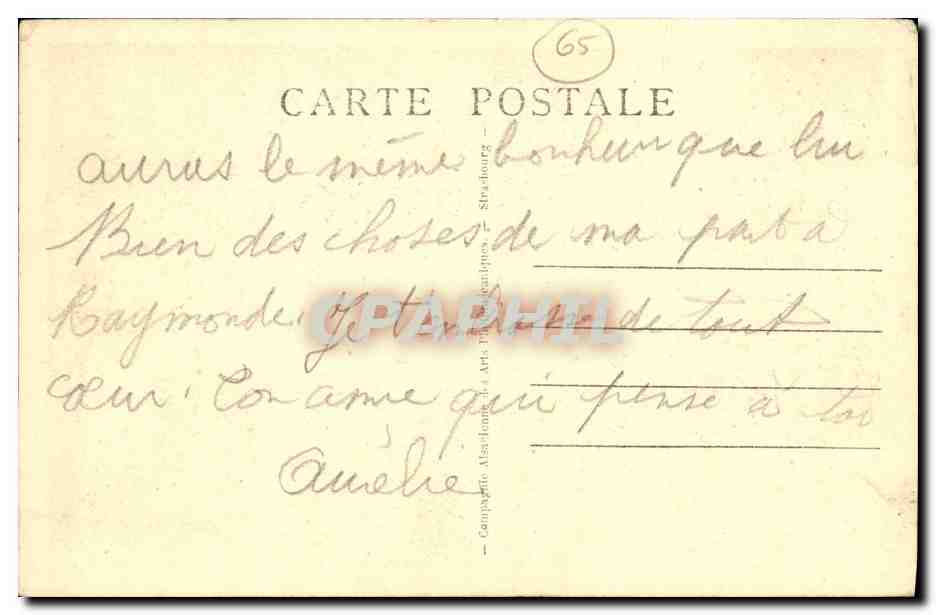 65
CARTE POSTALE
auras le même bonheur que lui
Bien des choses de ma part a
Raymonde. Je t'embrasse de tout
cœur. Ton amie qui pense à toi
Aurélie
— Compagnie Alsacienne des Arts Photomécaniques. — Strasbourg —
CPAPHIL